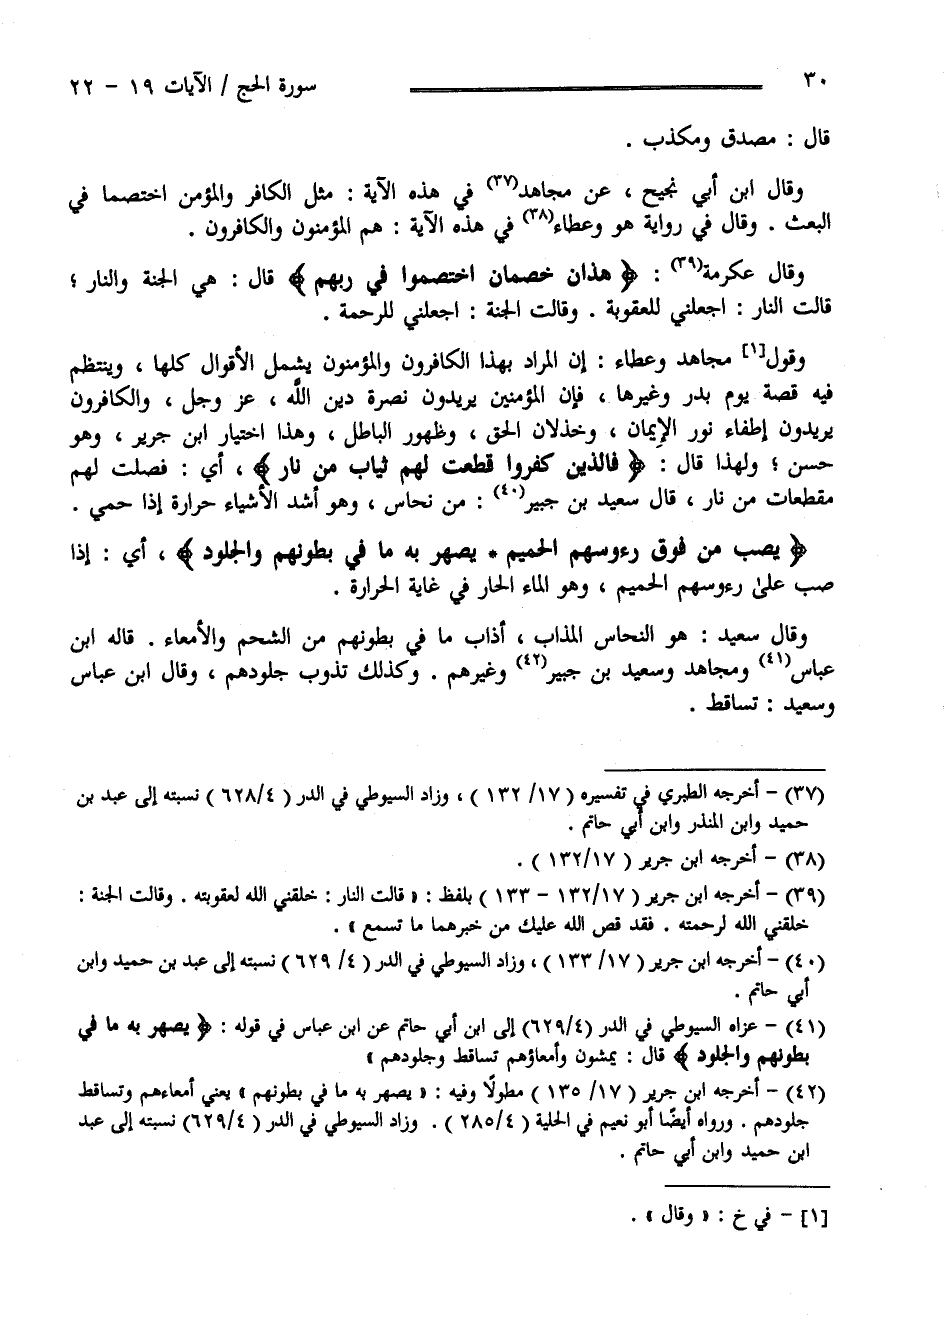 ٣٠ سورة الحج / الآيات ١٩ - ٢٢
قال : مصدق ومكذب .
وقال ابن أبي نجيح ، عن مجاهد(٣٧) في هذه الآية : مثل الكافر والمؤمن اختصما في
البعث . وقال في رواية هو وعطاء(٣٨) في هذه الآية : هم المؤمنون والكافرون .
وقال عكرمة(٣٩) : ﴿ هذان خصمان اختصموا في ربهم ﴾ قال : هي الجنة والنار ؛
قالت النار : اجعلني للعقوبة . وقالت الجنة : اجعلني للرحمة .
وقول[١] مجاهد وعطاء : إن المراد بهذا الكافرون والمؤمنون يشمل الأقوال كلها ، وينتظم
فيه قصة يوم بدر وغيرها ، فإن المؤمنين يريدون نصرة دين اللَّه ، عز وجل ، والكافرون
يريدون إطفاء نور الإيمان ، وخذلان الحق ، وظهور الباطل ، وهذا اختيار ابن جرير ، وهو
حسن ؛ ولهذا قال : ﴿ فالذين كفروا قطعت لهم ثياب من نار ﴾ ، أي : فصلت لهم
مقطعات من نار ، قال سعيد بن جبير(٤٠) : من نحاس ، وهو أشد الأشياء حرارة إذا حمي .
﴿ يصب من فوق رءوسهم الحميم * يصهر به ما في بطونهم والجلود ﴾ ، أي : إذا
صب علىٰ رءوسهم الحميم ، وهو الماء الحار في غاية الحرارة .
وقال سعيد : هو النحاس المذاب ، أذاب ما في بطونهم من الشحم والأمعاء . قاله ابن
عباس(٤١) ومجاهد وسعيد بن جبير(٤٢) وغيرهم . وكذلك تذوب جلودهم ، وقال ابن عباس
وسعيد : تساقط .
(٣٧) - أخرجه الطبري في تفسيره ( ١٧/ ١٣٢ ) ، وزاد السيوطي في الدر ( ٦٢٨/٤ ) نسبته إلى عبد بن
حميد وابن المنذر وابن أبي حاتم .
(٣٨) - أخرجه ابن جرير ( ١٣٢/١٧ ) .
(٣٩) - أخرجه ابن جرير ( ١٣٢/١٧ - ١٣٣ ) بلفظ : « قالت النار : خلقني الله لعقوبته . وقالت الجنة :
خلقني الله لرحمته . فقد قص الله عليك من خبرهما ما تسمع » .
(٤٠) - أخرجه ابن جرير ( ١٧/ ١٣٣ ) ، وزاد السيوطي في الدر ( ٤/ ٦٢٩ ) نسبته إلى عبد بن حميد وابن
أبي حاتم .
(٤١) - عزاه السيوطي في الدر (٦٢٩/٤) إلى ابن أبي حاتم عن ابن عباس في قوله : ﴿ يصهر به ما في
بطونهم والجلود ﴾ قال : يمشون وأمعاؤهم تساقط وجلودهم »
(٤٢) - أخرجه ابن جرير ( ١٧/ ١٣٥ ) مطولًا وفيه : « يصهر به ما في بطونهم » يعني أمعاءهم وتساقط
جلودهم . ورواه أيضًا أبو نعيم في الحلية ( ٢٨٥/٤ ) . وزاد السيوطي في الدر ( ٦٢٩/٤) نسبته إلى عبد
ابن حميد وابن أبي حاتم .
[١] - في خ : « وقال » .